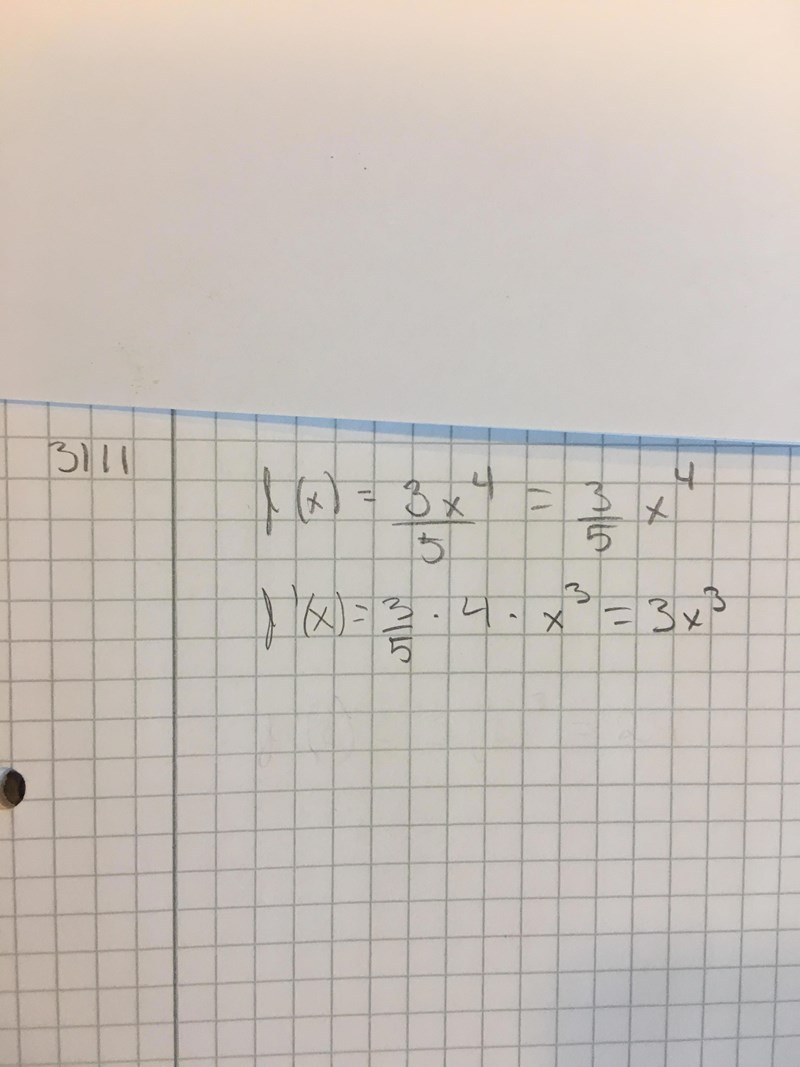 3111
f(x) = 3x⁴/5 = 3/5 x⁴
f'(x) = 3/5 · 4 · x³ = 3x³